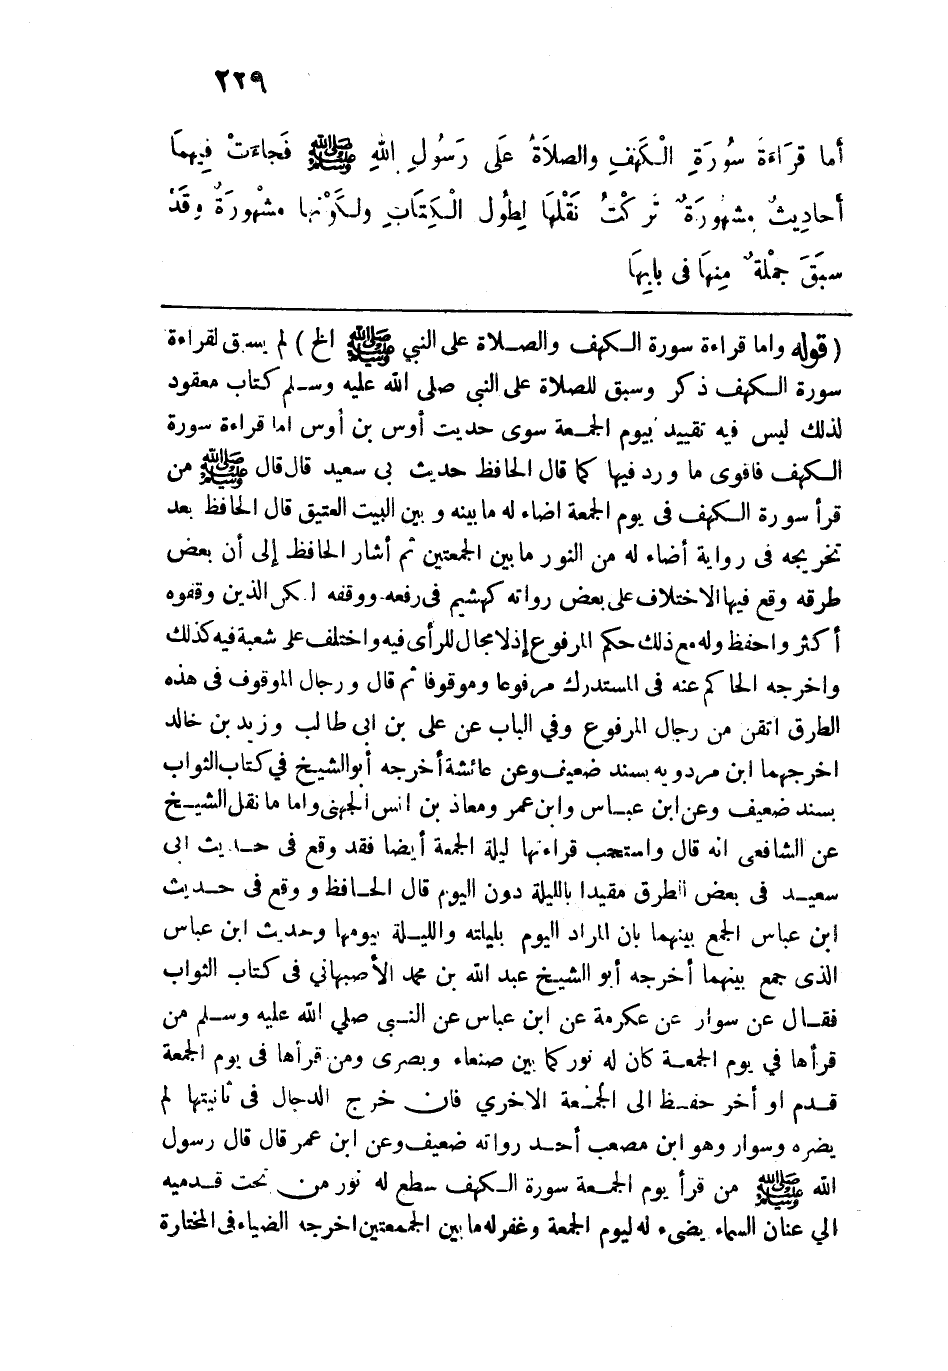 ٢٢٩
أما قرَاءَةَ سُورَةِ الْكَهَفِ والصلاَةُ علَى رَسُولِ اللهِ ﷺ فَجاءَتْ فِيهمَا
أحادِيثٌ مشهُورَةٌ تَركْتُ نَقْلهَا لِطُولِ الْكِتَابِ ولكَوْنها مشْهورَةً وقَدْ
سبَقَ جمْلةٌ مِنهَا فى بابِهَا
( قوله واما قراءة سورة الكهف والصلاة على النبي ﷺ الخ ) لم يسبق لقراءة
سورة الكهف ذكر وسبق للصلاة على النبي صلى الله عليه وسلم كتاب معقود
لذلك ليس فيه تقييد بيوم الجمعة سوى حديث أوس بن أوس اما قراءة سورة
الكهف فاقوى ما ورد فيها كما قال الحافظ حديث بى سعيد قال قال ﷺ من
قرأ سورة الكهف فى يوم الجمعة اضاء له ما بينه و بين البيت العتيق قال الحافظ بعد
تخريجه فى رواية أضاء له من النور ما بين الجمعتين ثم أشار الحافظ إلى أن بعض
طرقه وقع فيها الاختلاف على بعض رواته كهشيم فى رفعه ووقفه لكن الذين وقفوه
أكثر واحفظ وله مع ذلك حكم المرفوع إذلا مجال للرأى فيه واختلف على شعبة فيه كذلك
واخرجه الحاكم عنه فى المستدرك مرفوعا وموقوفا ثم قال ورجال الموقوف فى هذه
الطرق اتقن من رجال المرفوع وفي الباب عن على بن ابى طالب وزيد بن خالد
اخرجهما ابن مردويه بسند ضعيف وعن عائشة أخرجه أبو الشيخ في كتاب الثواب
بسند ضعيف وعن ابن عباس وابن عمر ومعاذ بن انس الجهنى واما ما نقل الشيخ
عن الشافعى انه قال واستحب قراءتها ليلة الجمعة أيضا فقد وقع فى حديث ابى
سعيد فى بعض الطرق مقيدا بالليلة دون اليوم قال الحافظ و وقع فى حديث
ابن عباس الجمع بينهما بان المراد اليوم بليلته والليلة بيومها وحديث ابن عباس
الذى جمع بينهما أخرجه أبو الشيخ عبد الله بن محمد الأصبهاني فى كتاب الثواب
فقال عن سوار عن عكرمة عن ابن عباس عن النبى صلي الله عليه وسلم من
قرأها في يوم الجمعة كان له نور كما بين صنعاء وبصرى ومن قرأها فى يوم الجمعة
قدم او أخر حفظ الى الجُمُعة الاخري فان خرج الدجال فى ثانيتها لم
يضره وسوار وهو ابن مصعب أحد رواته ضعيف وعن ابن عمر قال قال رسول
الله ﷺ من قرأ يوم الجمعة سورة الكهف سطع له نور من تحت قدميه
الي عنان السماء يضىء له ليوم الجمعة وغفر له ما بين الجمعتين اخرجه الضياء فى المختارة